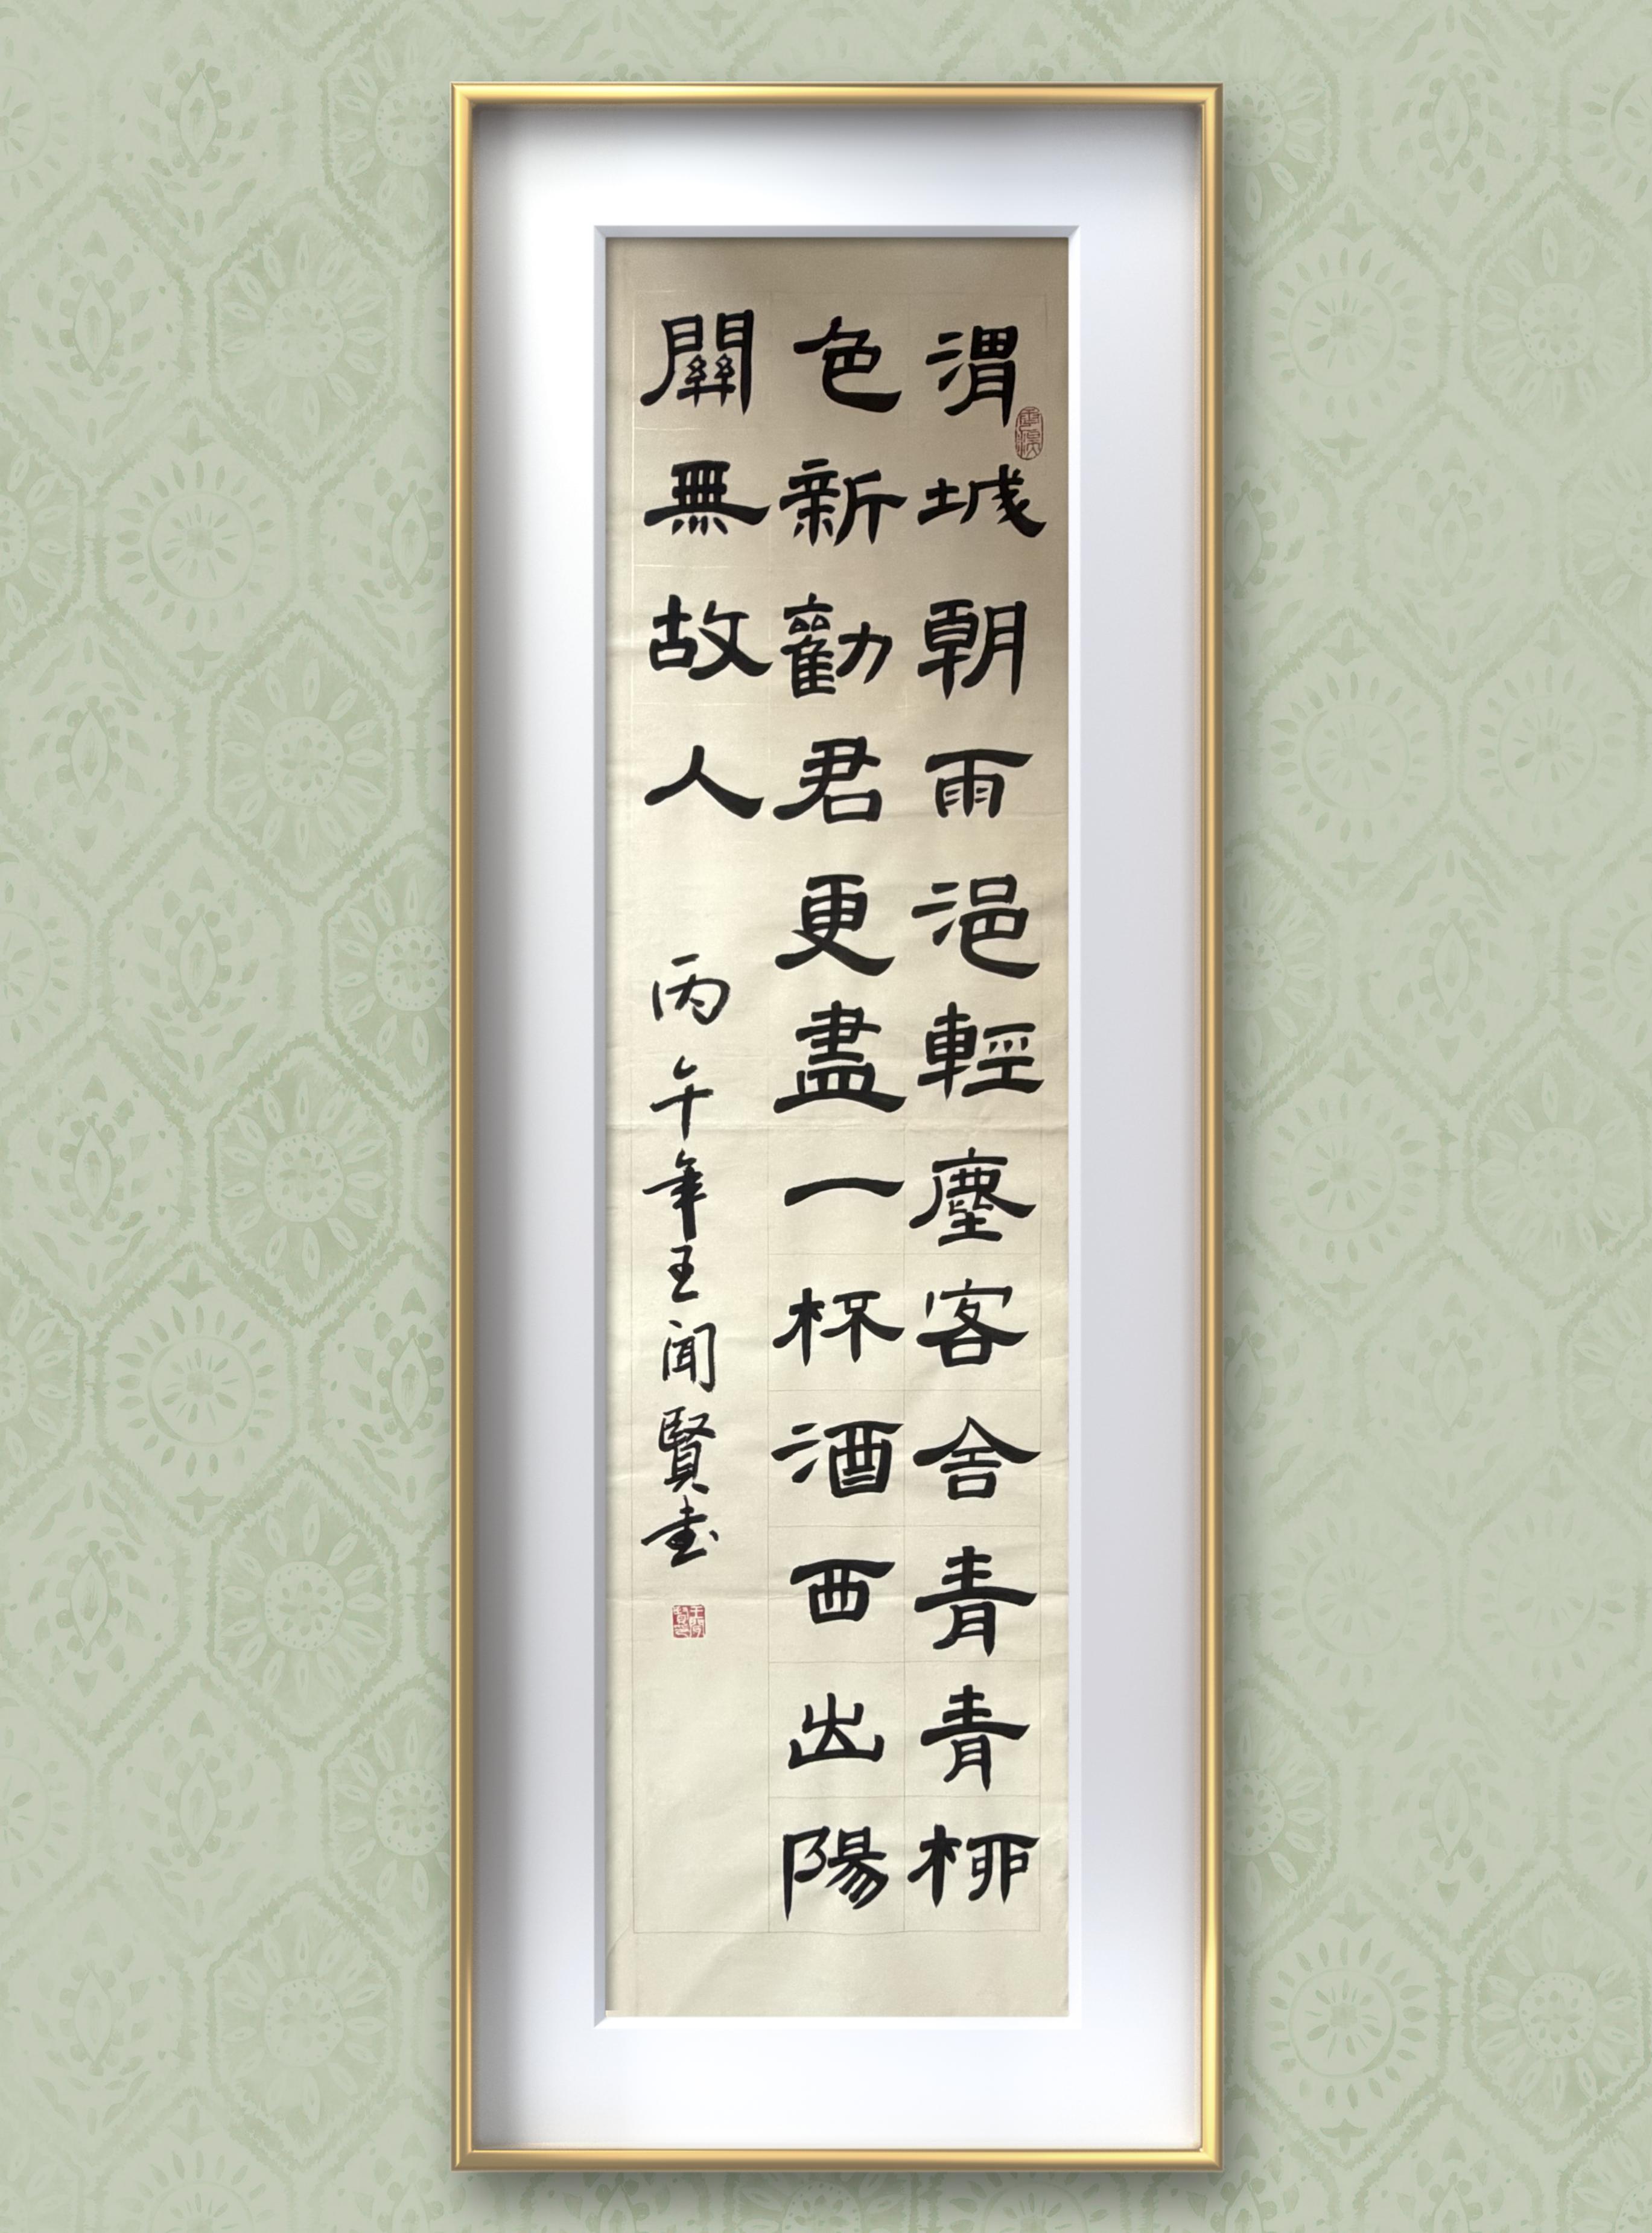 渭城朝雨浥輕塵客舍青青柳
色新勸君更盡一杯酒西出陽
關無故人
丙午年王聞賢書